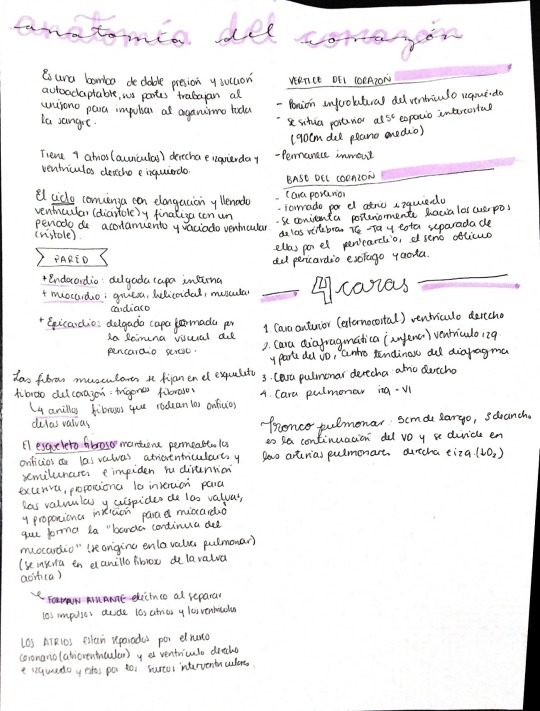 anatomía del corazón
Es una bomba de doble presión y succión
autoadaptable, sus partes trabajan al
unísono para impulsar al organismo toda
la sangre.
Tiene 4 atrios (aurículas) derecha e izquierda y
ventrículos derecho e izquierdo.
El ciclo comienza con elongación y llenado
ventricular (diástole) y finaliza con un
periodo de acortamiento y vaciado ventricular
(sístole).
PARED
+ Endocardio: delgada capa interna
+ miocardio: gruesa, helicoidal, muscular
cardiaco
+ Epicardio: delgada capa formada por
la lámina visceral del
pericardio seroso.
Las fibras musculares se fijan en el esqueleto
fibroso del corazón: trígonos fibrosos
4 anillos fibrosos que rodean los orificios
de las valvas
El esqueleto fibroso mantiene permeables los
orificios de las valvas atrioventriculares y
semilunares e impiden su distensión
excesiva, proporciona la inserción para
las valvulas y cúspides de las valvas,
y proporciona inserción para el miocardio
que forma la "banda continua del
miocardio" (se origina en la valva pulmonar)
(se inserta en el anillo fibroso de la valva
aórtica)
FORMAN AISLANTE eléctrico al separar
los impulsos desde los atrios y los ventriculos
LOS ATRIOS están separados por el surco
coronario (atrioventricular) y el ventriculo derecho
e izquierdo y estos por los surcos interventriculares.
VERTICE DEL CORAZÓN
- Porción inferolateral del ventriculo izquierdo
- se situa posterior al 5º espacio intercostal
(90cm del plano medio)
- Permanece inmovil
BASE DEL CORAZÓN
- Cara posterior
- Formado por el atrio izquierdo
- se orienta posteriormente hacia los cuerpos
de las vértebras T6 - T9 y esta separada de
ellas por el pericardio, el seno oblicuo
del pericardio esofago y aorta.
4 caras
1. Cara anterior (esternocostal) ventrículo derecho
2. Cara diafragmática (inferior) ventriculo izq.
y parte del VD, centro tendinoso del diafragma
3. Cara pulmonar derecha: atrio derecho
4. Cara pulmonar izq - VI
Tronco pulmonar: 5cm de largo, 3 de ancho
es la continuación del VD y se divide en
las arterias pulmonares derecha e izq.